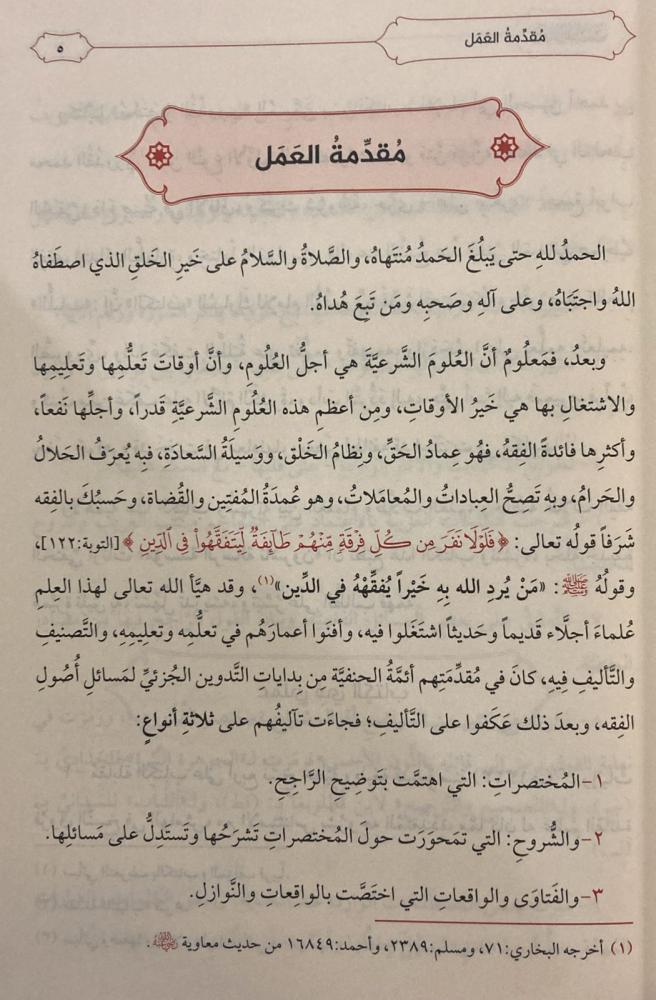 مُقدِّمةُ العَمَل
٥
مُقدِّمةُ العَمَل
الحمدُ للهِ حتى يَبلُغَ الحَمدُ مُنتَهاهُ، والصَّلاةُ والسَّلامُ على خَيرِ الخَلقِ الذي اصطَفاهُ
اللهُ واجتَبَاهُ، وعلى آلهِ وصَحبِه ومَن تَبِعَ هُداهُ.
وبعدُ، فمَعلُومٌ أنَّ العُلومَ الشَّرعيَّةَ هي أجلُّ العُلُومِ، وأنَّ أوقاتَ تَعلُّمِها وتَعلِيمِها
والاشتغالِ بها هي خَيرُ الأوقاتِ، ومِن أعظمِ هذه العُلُومِ الشَّرعيَّةِ قَدراً، وأجلِّها نَفعاً،
وأكثرِها فائدةً الفِقهُ، فهُو عِمادُ الحَقِّ، ونِظامُ الخَلْق، ووَسيلَةُ السَّعادَةِ، فبِه يُعرَفُ الحَلالُ
والحَرامُ، وبهِ تَصِحُّ العِباداتُ والمُعامَلاتُ، وهو عُمدَةُ المُفتِين والقُضاة، وحَسبُكَ بالفِقه
شَرَفاً قولُه تعالى: ﴿فَلَوۡلَا نَفَرَ مِن كُلِّ فِرۡقَةٖ مِّنۡهُمۡ طَآئِفَةٞ لِّيَتَفَقَّهُواْ فِي ٱلدِّينِ﴾ [التوبة:١٢٢]،
وقولُهُ ﷺ: «مَنْ يُردِ الله بِهِ خَيْراً يُفقِّهْهُ في الدِّين»(١)، وقد هيَّأ الله تعالى لهذا العِلمِ
عُلماءَ أجلَّاء قَديماً وحَديثاً اشتَغَلوا فيه، وأفنَوا أعمارَهُم في تعلُّمِه وتعلِيمِهِ، والتَّصنيفِ
والتَّأليفِ فِيهِ، كانَ في مُقدِّمَتِهم أئمَّةُ الحنفيَّة مِن بِداياتِ التَّدوين الجُزئيِّ لمَسائلِ أُصُولِ
الفِقه، وبعدَ ذلك عَكَفوا على التَّأليفِ؛ فجاءَت تآليفُهم على ثلاثةِ أنواعٍ:
١-المُختصراتِ: التي اهتمَّت بتَوضِيحِ الرَّاجِحِ.
٢-والشُّروحِ: التي تمَحورَت حولَ المُختصراتِ تَشرَحُها وتَستَدِلُّ على مَسائلِها.
٣-والفَتاوَى والواقعاتِ التي اختَصَّت بالواقِعاتِ والنَّوازلِ.
(١) أخرجه البخاري:٧١، ومسلم:٢٣٨٩، وأحمد:١٦٨٤٩ من حديث معاوية رضي الله عنه.